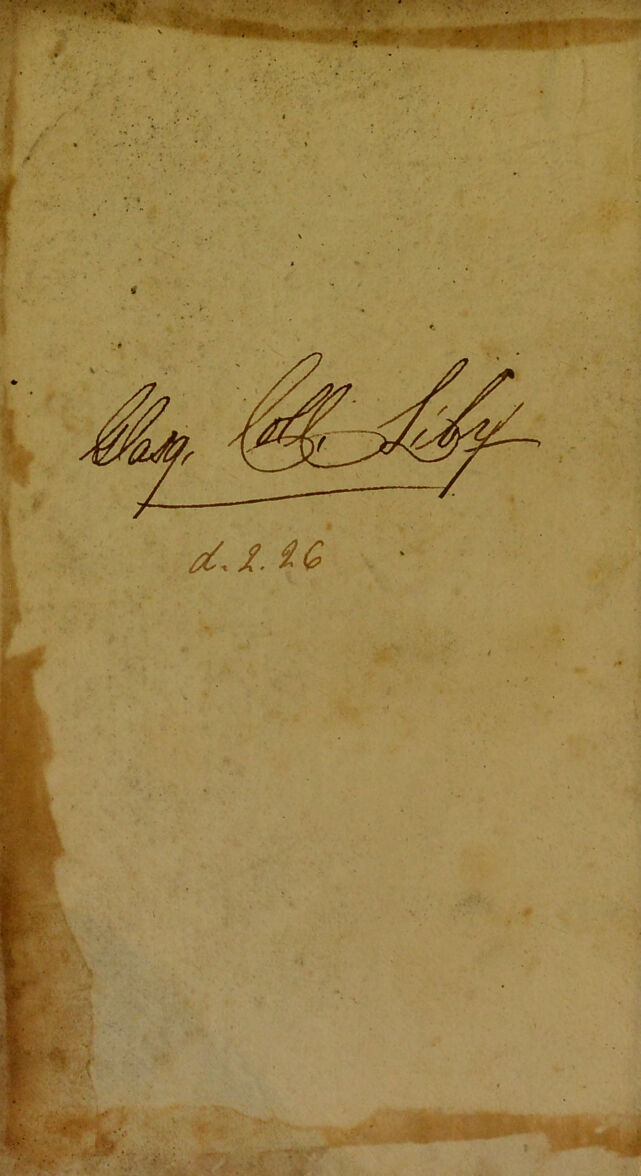 Glasg. Coll. Liby
d. 2. 26